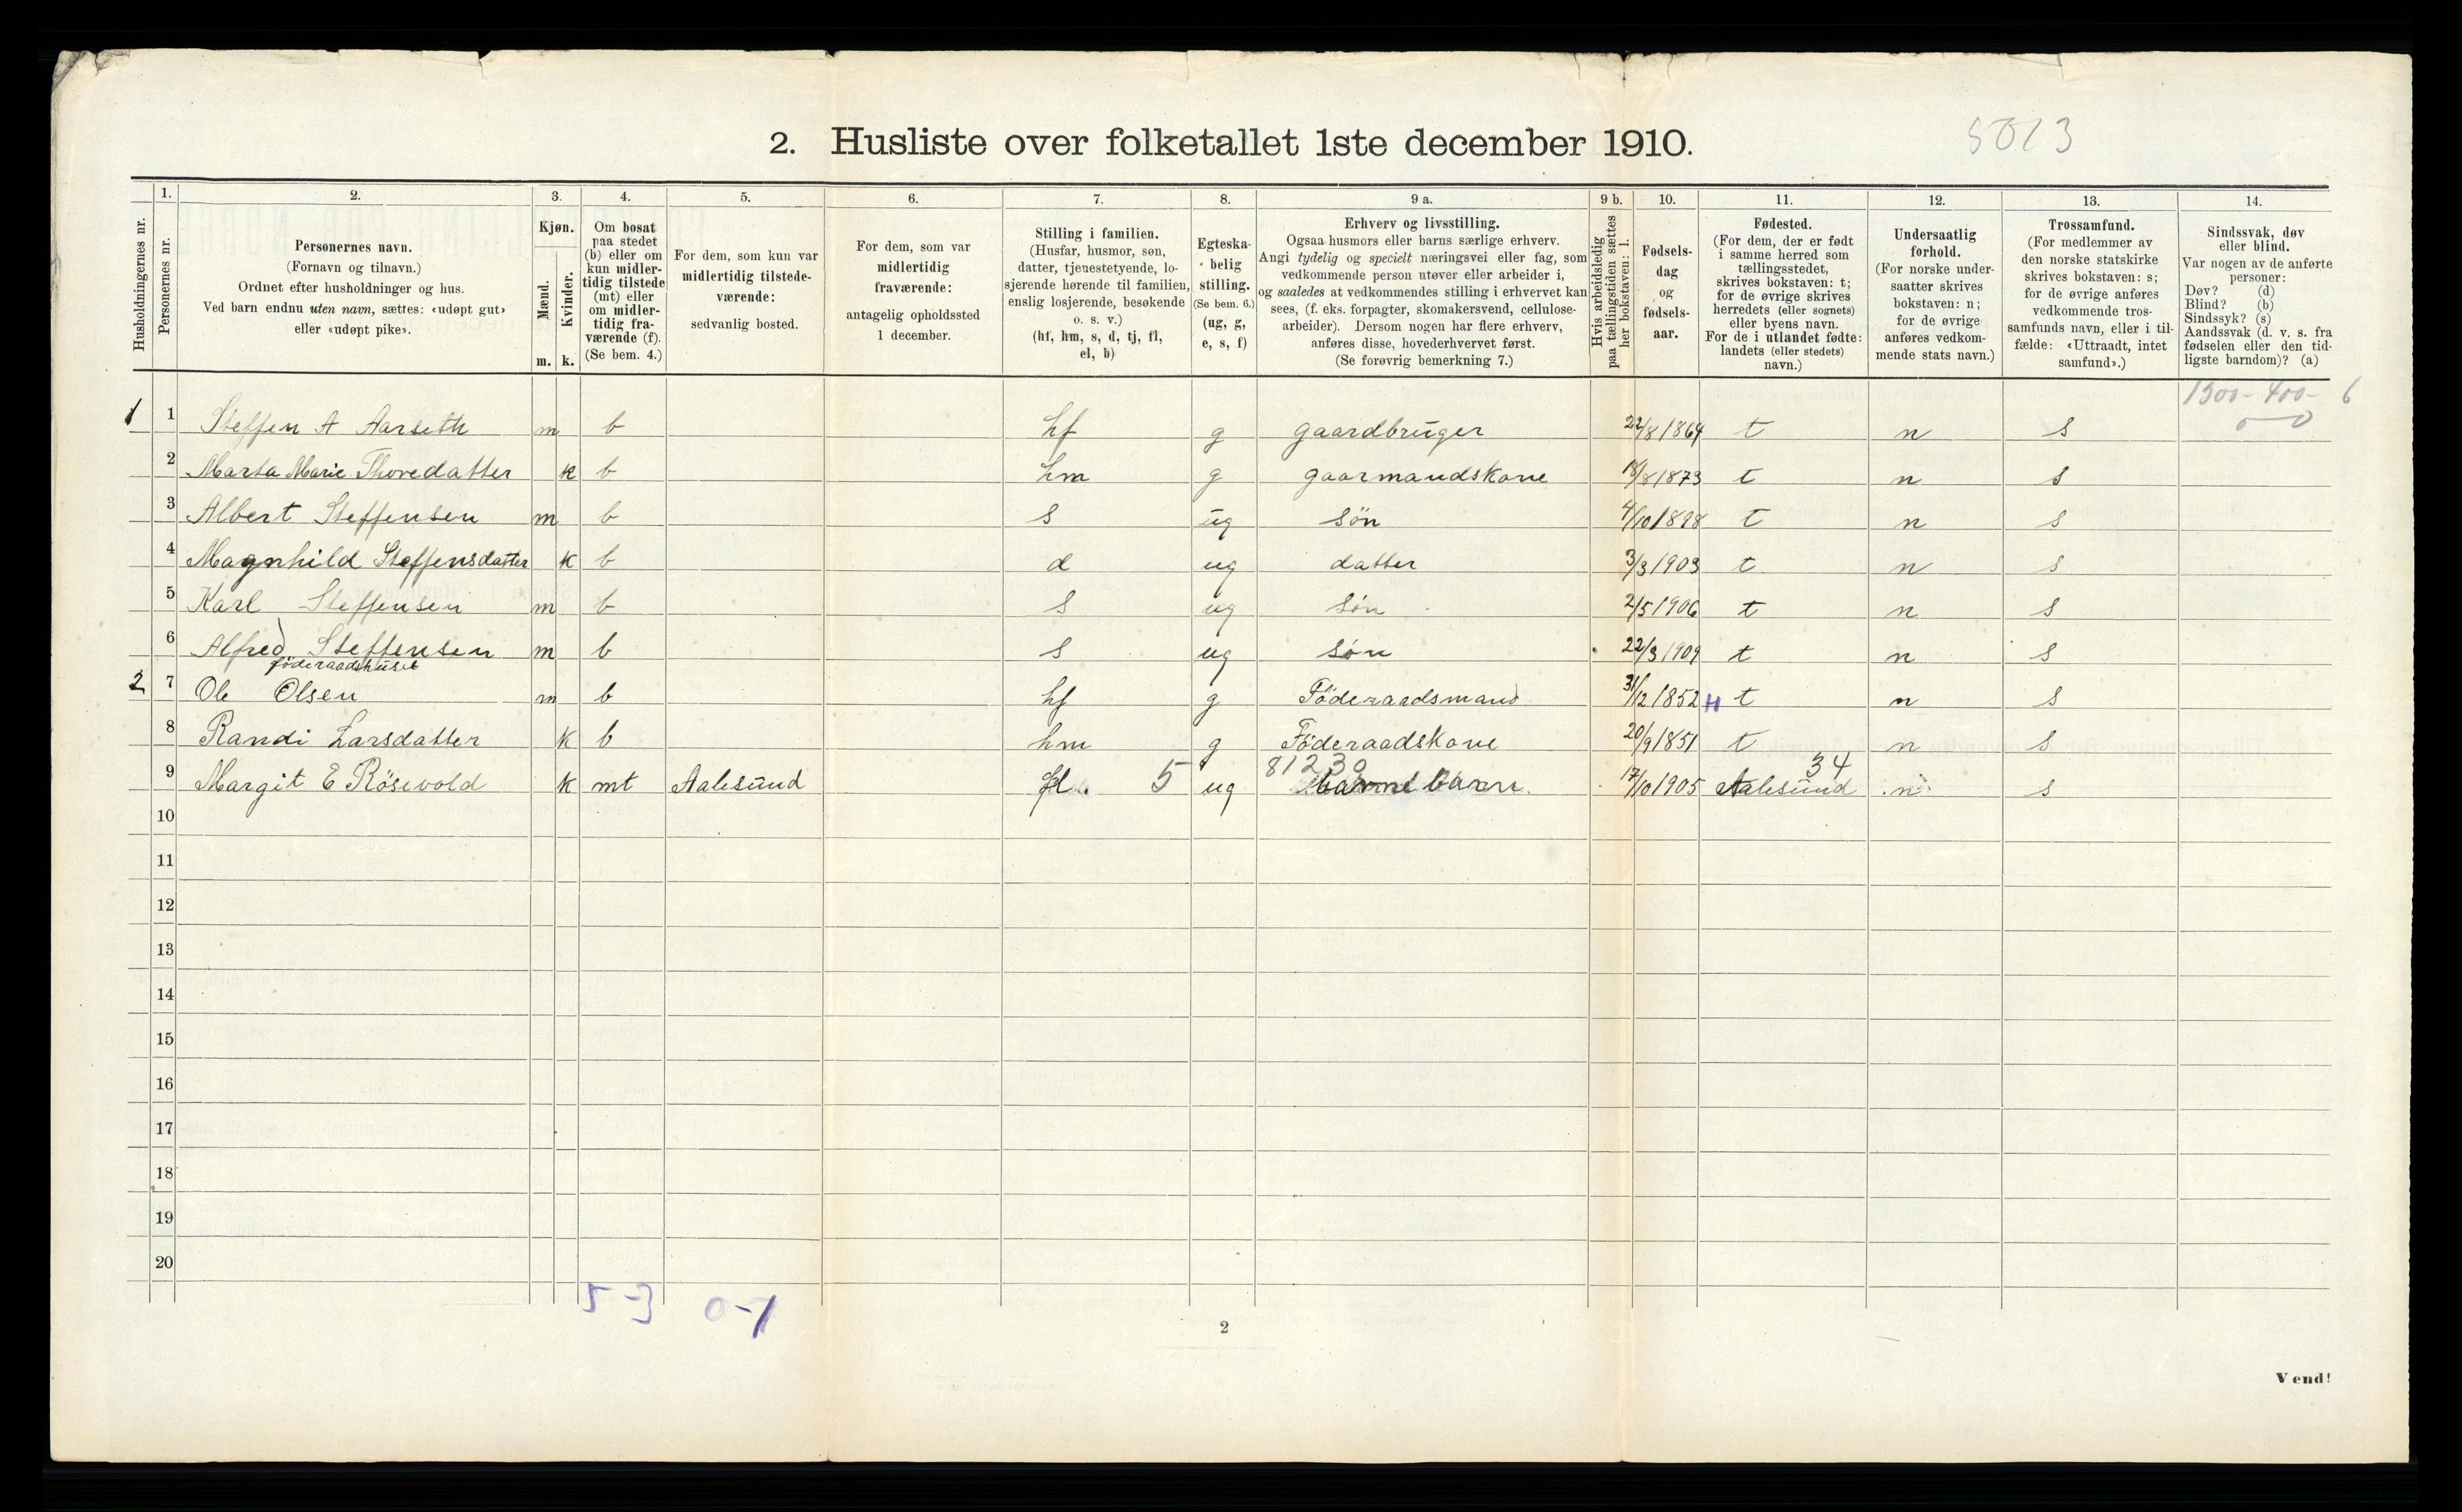 2. Husliste over folketallet 1ste december 1910.
5013
Husholdningernes nr.
1.
Personernes nr.
2.
Personernes navn.
(Fornavn og tilnavn.)
Ordnet efter husholdninger og hus.
Ved barn endnu uten navn, sættes: «udøpt gut»
eller «udøpt pike».
3.
Kjøn.
Mænd.
Kvinder.
m. k.
4.
Om bosat
paa stedet
(b) eller om
kun midler-
tidig tilstede
(mt) eller
om midler-
tidig fra-
værende (f).
(Se bem. 4.)
5.
For dem, som kun var
midlertidig tilstede-
værende:
sedvanlig bosted.
6.
For dem, som var
midlertidig
fraværende:
antagelig opholdssted
1 december.
7.
Stilling i familien.
(Husfar, husmor, søn,
datter, tjenestetyende, lo-
sjerende hørende til familien,
enslig losjerende, besøkende
o. s. v.)
(hf, hm, s, d, tj, fl,
el, b)
8.
Egteska-
belig
stilling.
(Se bem. 6.)
(ug, g,
e, s, f)
9 a.
Erhverv og livsstilling.
Ogsaa husmors eller barns særlige erhverv.
Angi tydelig og specielt næringsvei eller fag, som
vedkommende person utøver eller arbeider i,
og saaledes at vedkommendes stilling i erhvervet kan
sees, (f. eks. forpagter, skomakersvend, cellulose-
arbeider). Dersom nogen har flere erhverv,
anføres disse, hovederhvervet først.
(Se forøvrig bemerkning 7.)
9 b.
Hvis arbeidsledig
paa tællingstiden sættes
her bokstaven: l.
10.
Fødsels-
dag
og
fødsels-
aar.
11.
Fødested.
(For dem, der er født
i samme herred som
tællingsstedet,
skrives bokstaven: t;
for de øvrige skrives
herredets (eller sognets)
eller byens navn.
For de i utlandet fødte:
landets (eller stedets)
navn.)
12.
Undersaatlig
forhold.
(For norske under-
saatter skrives
bokstaven: n;
for de øvrige
anføres vedkom-
mende stats navn.)
13.
Trossamfund.
(For medlemmer av
den norske statskirke
skrives bokstaven: s;
for de øvrige anføres
vedkommende tros-
samfunds navn, eller i til-
fælde: «Uttraadt, intet
samfund».)
14.
Sindssvak, døv
eller blind.
Var nogen av de anførte
personer:
Døv? (d)
Blind? (b)
Sindssyk? (s)
Aandssvak (d. v. s. fra
fødselen eller den tid-
ligste barndom)? (a)
1300-400- 6
1 1 Steffen A Aarseth m b hf g gaardbruger 22/8 1864 t n s
2 Marta Marie Thoredatter k b hm g gaarmandskone 18/8 1873 t n s
3 Albert Steffensen m b s ug søn 4/10 1898 t n s
4 Magnhild Steffensdatter k b d ug datter 3/3 1903 t n s
5 Karl Steffensen m b s ug søn 2/5 1906 t n s
6 Alfred Steffensen m b s ug søn 22/3 1909 t n s
föderaadshuset
2 7 Ole Olsen m b hf g Föderaadsmand 31/12 1852 H t n s
8 Randi Larsdatter k b hm g Föderaadskone 20/9 1851 t n s
81230 34
9 Margit E Rösevold k mt Aalesund fl. 5 ug barn 17/10 1905 Aalesund n s
10
11
12
13
14
15
16
17
18
19
20
5-3 0-1
2
Vend!